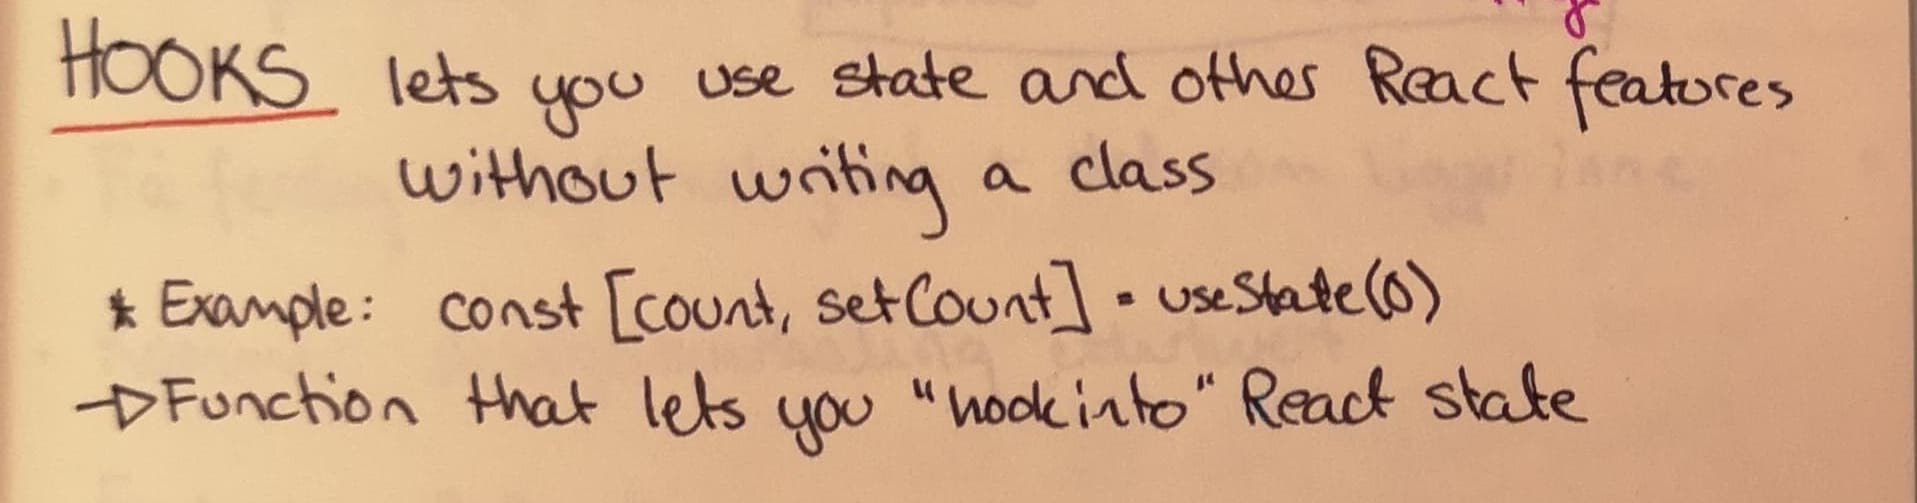 HOOKS lets you use state and other React features
without writing a class
* Example: const [count, setCount] = useState(0)
→ Function that lets you "hook into" React state